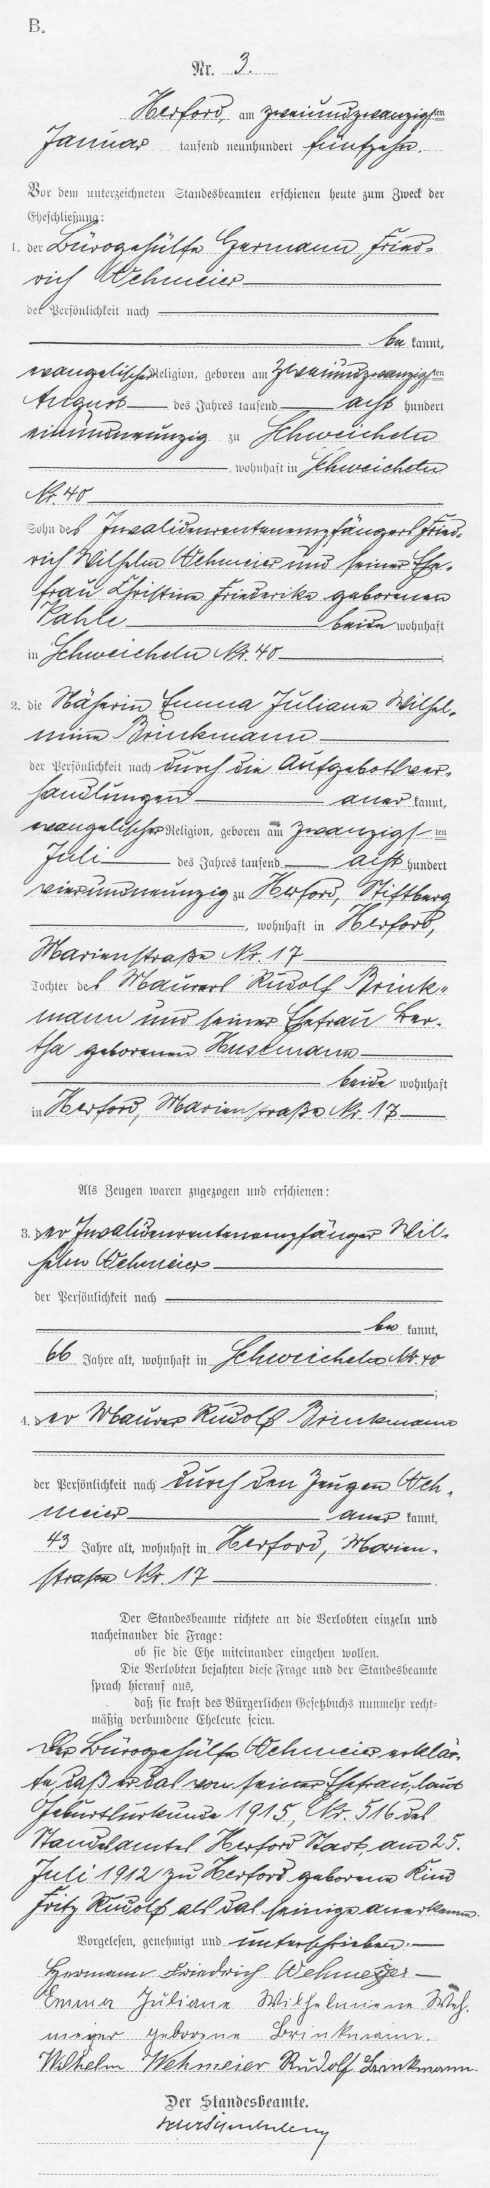 B.
Nr. 3.
Herford, am zweiundzwanzigsten
Januar tausend neunhundert fünfzehn.
Vor dem unterzeichneten Standesbeamten erschienen heute zum Zweck der
Eheschließung:
1. der Bürogehülfe Hermann Fried-
rich Wehmeier
der Persönlichkeit nach
be kannt,
evangelischer Religion, geboren am zweiundzwanzigsten
August des Jahres tausend acht hundert
einundneunzig zu Schweicheln
, wohnhaft in Schweicheln
Nr. 40
Sohn des Invalidenrentenempfängers Fried-
rich Wilhelm Wehmeier und seiner Ehe-
frau Christine Friederike geborenen
Pahle beide wohnhaft
in Schweicheln Nr. 40 ;
2. die Näherin Emma Juliane Wilhel-
mine Brinkmann
der Persönlichkeit nach durch die Aufgebotsver-
handlungen aner kannt,
evangelischer Religion, geboren am zwanzigsten
Juli des Jahres tausend acht hundert
vierundneunzig zu Herford, Stiftberg
, wohnhaft in Herford,
Marienstraße Nr. 17
Tochter des Maurers Rudolf Brink-
mann und seiner Ehefrau Ber-
tha geborenen Husemann
beide wohnhaft
in Herford, Marienstraße Nr. 17
Als Zeugen waren zugezogen und erschienen:
3. der Invalidenrentenempfänger Wil-
helm Wehmeier
der Persönlichkeit nach
be kannt,
66 Jahre alt, wohnhaft in Schweicheln Nr. 40
;
4. der Maurer Rudolf Brinkmann
der Persönlichkeit nach durch den Zeugen Weh-
meier aner kannt,
43 Jahre alt, wohnhaft in Herford, Marien-
straße Nr. 17 .
Der Standesbeamte richtete an die Verlobten einzeln und
nacheinander die Frage:
ob sie die Ehe miteinander eingehen wollen.
Die Verlobten bejahten diese Frage und der Standesbeamte
sprach hierauf aus,
daß sie kraft des Bürgerlichen Gesetzbuchs nunmehr recht-
mäßig verbundene Eheleute seien.
Der Bürogehülfe Wehmeier erklär-
te, daß er das von seiner Ehefrau, laut
Geburtsurkunde 1915, Nr. 516 des
Standesamtes Herford Stadt, am 25.
Juli 1912 zu Herford geborene Kind
Fritz Rudolf als das seinige anerkenne.
Vorgelesen, genehmigt und unterschrieben.
Hermann Friedrich Wehmeyer
Emma Juliane Wilhelmiene Weh-
meyer geborene Brinkmann.
Wilhelm Wehmeier Rudolf Brinkmann.
Der Standesbeamte.